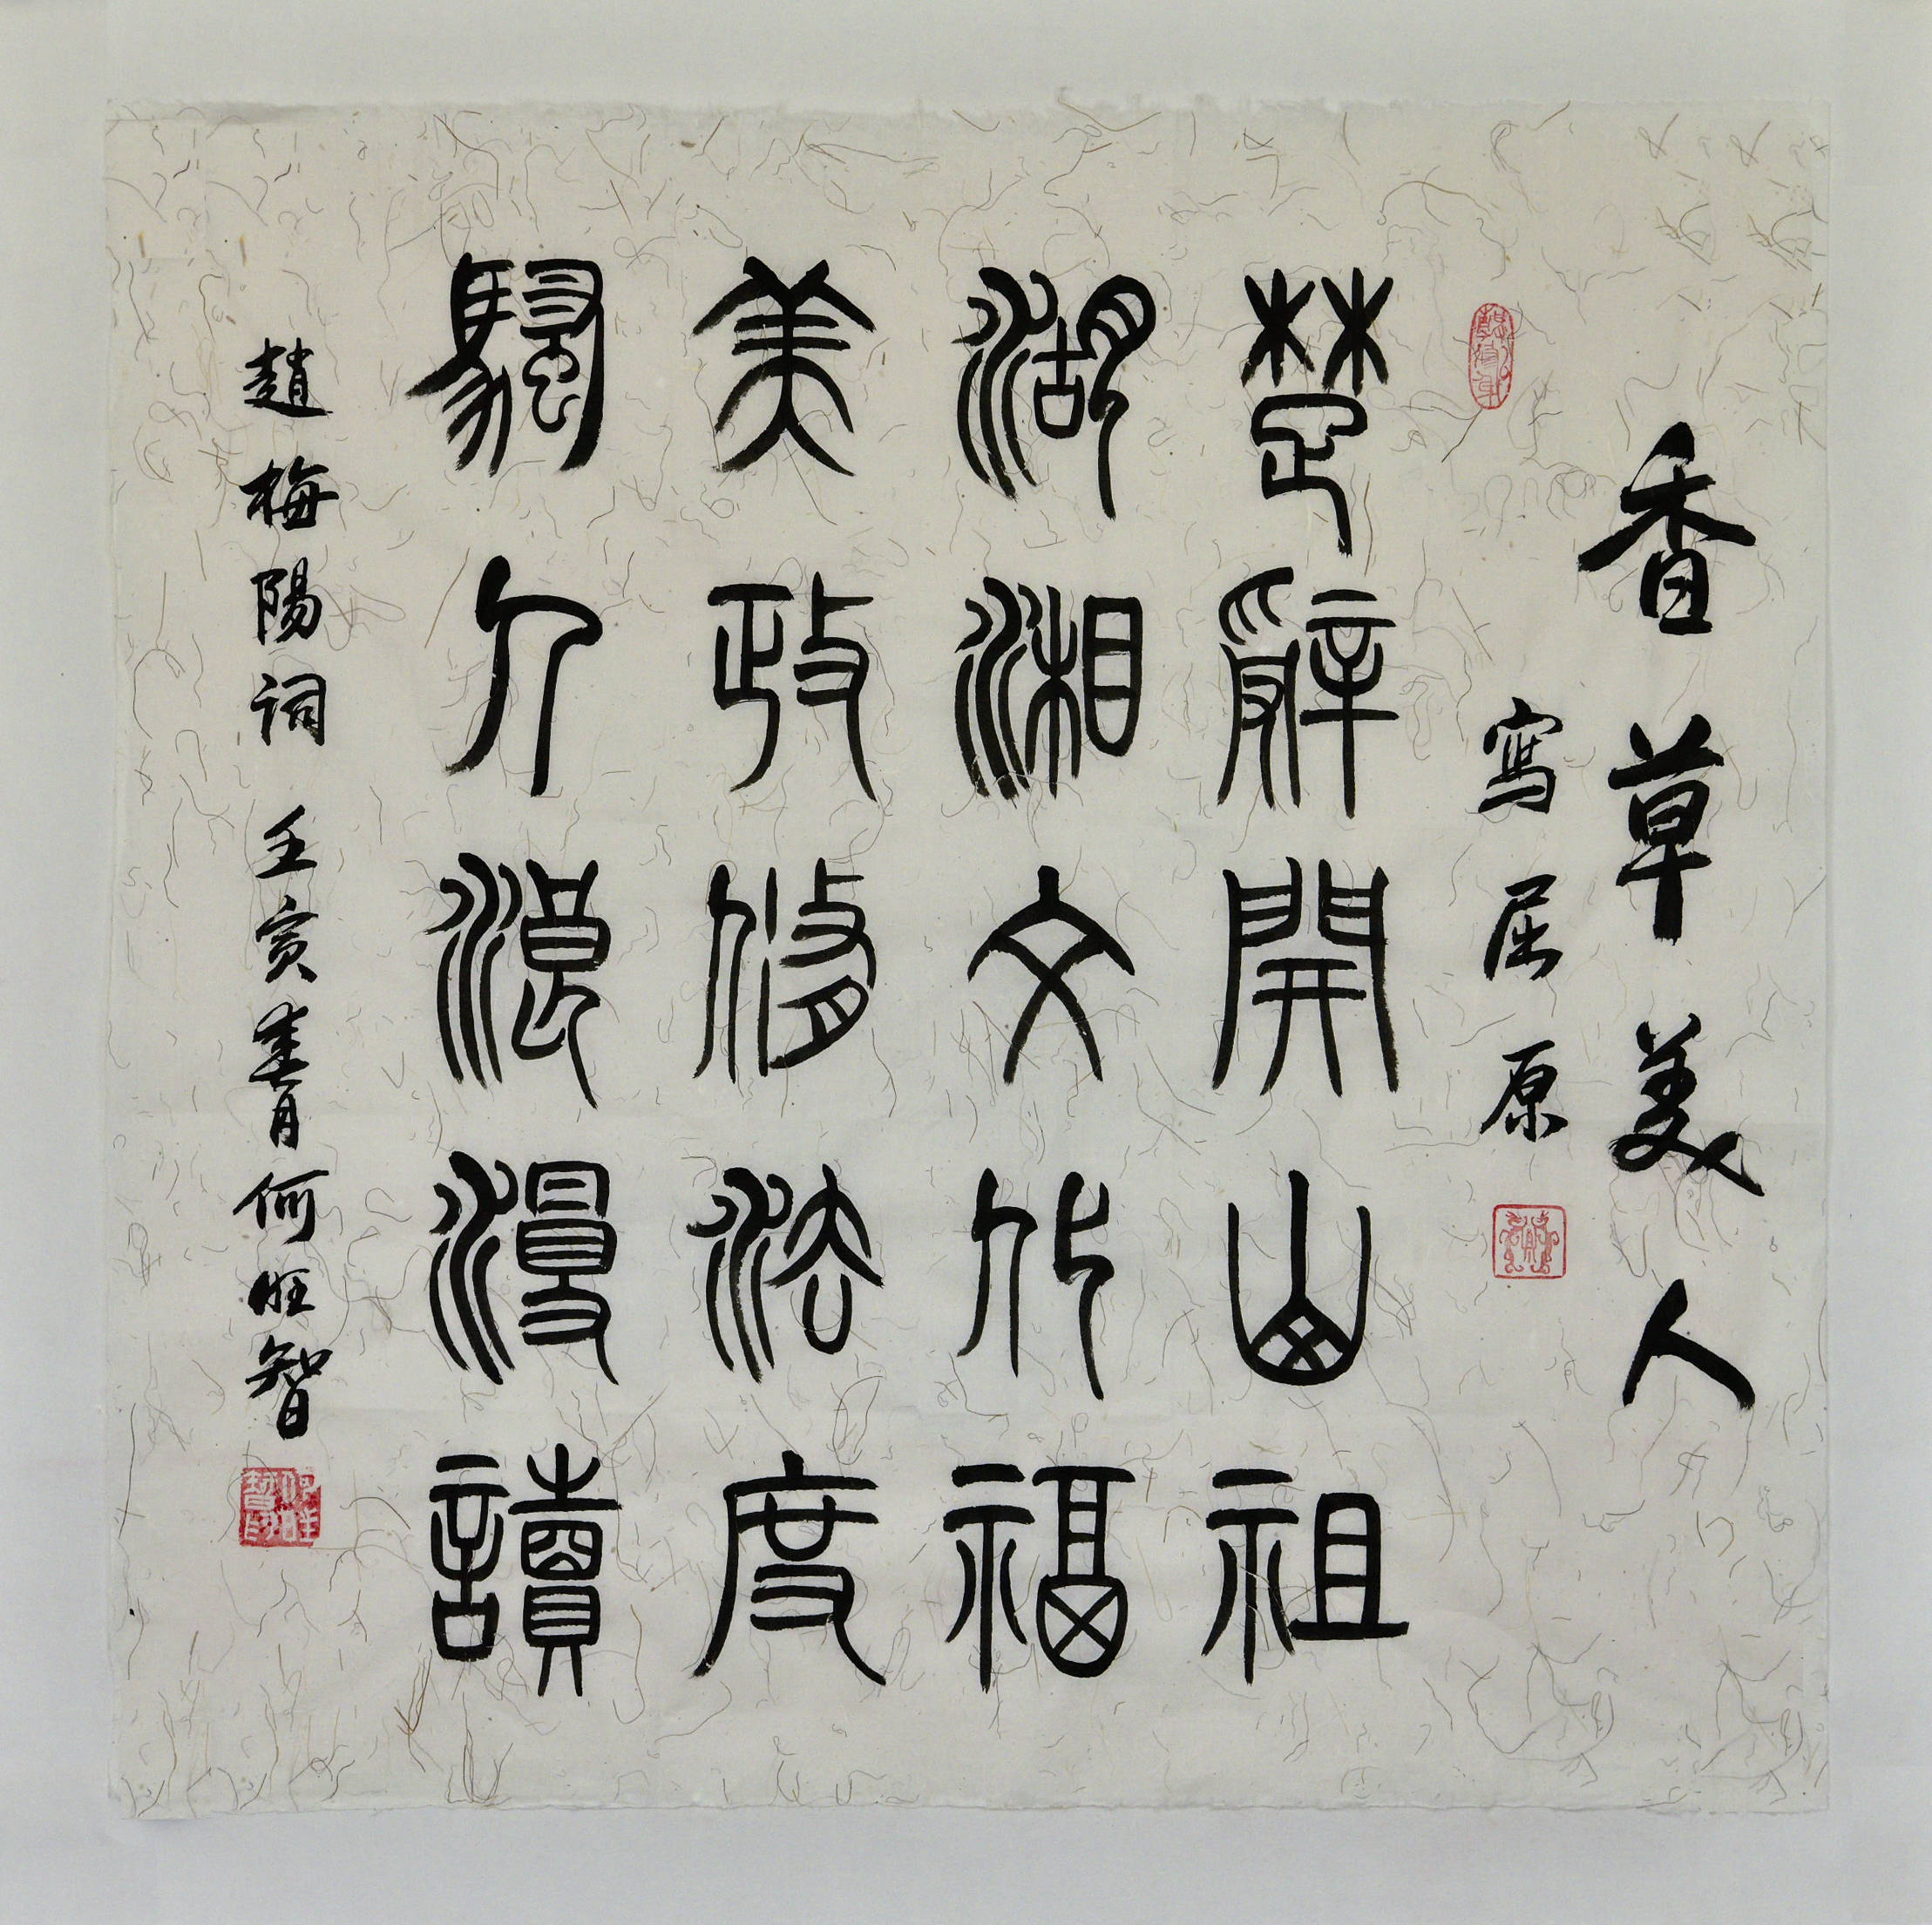 香草美人
寫屈原
楚辭開山祖
湖湘文化福
美政修法度
騷人浪漫讀
趙梅陽詞 壬寅春月何旺智